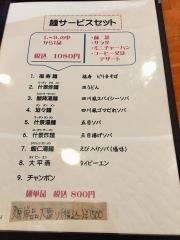 麺サービスセット
1.～9.の中
から1品
税込 1080円
・前菜
・サラダ
・ミニチャーハン
・コーヒー又は
デザート
1. 福寿麺 福寿 ピリ辛そば
2. 什景炒麺 皿うどん
3. 酸辣湯麺 四川風スパイシーソバ
4. 担々麺 四川風ゴマだれソバ
5. 什景湯麺 五目ソバ
6. 什景炸麺 五目揚げソバ
7. 蝦仁湯麺 えび入りソバ(塩味)
8. 太平燕 タイピーエン
9. チャンポン
麺単品 税込 800円